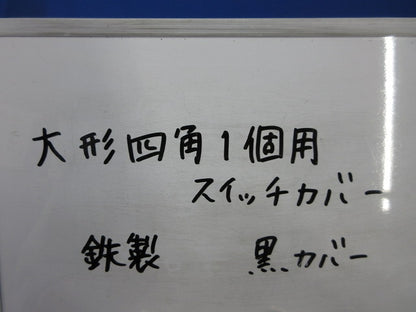 大形四角1個用
スイッチカバー
鉄製 黒カバー